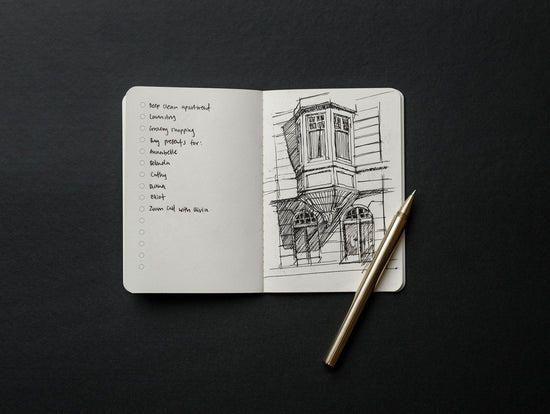 Deep clean apartment
Laundry
Grocery shopping
Buy presents for:
Annabelle
Belinda
Cathy
Diana
Elliot
Zoom call with Olivia